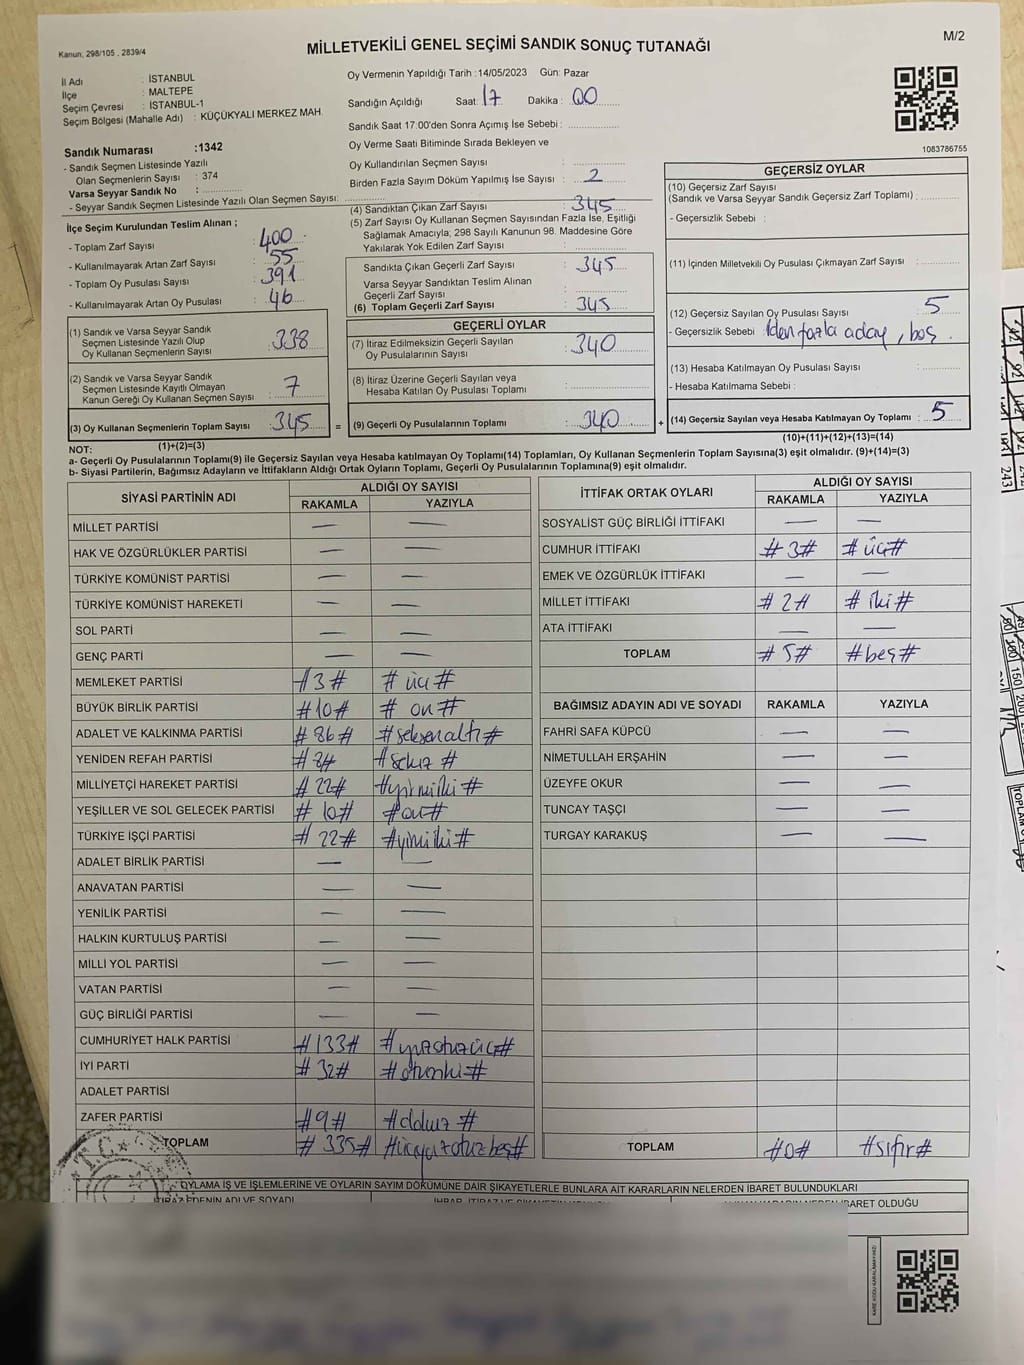 Kanun: 298/105 , 2839/4
MİLLETVEKİLİ GENEL SEÇİMİ SANDIK SONUÇ TUTANAĞI
M/2
İl Adı : İSTANBUL
İlçe : MALTEPE
Seçim Çevresi : İSTANBUL-1
Seçim Bölgesi (Mahalle Adı) : KÜÇÜKYALI MERKEZ MAH.
Sandık Numarası :1342
- Sandık Seçmen Listesinde Yazılı
Olan Seçmenlerin Sayısı : 374
Varsa Seyyar Sandık No :
- Seyyar Sandık Seçmen Listesinde Yazılı Olan Seçmen Sayısı:
Oy Vermenin Yapıldığı Tarih :14/05/2023 Gün: Pazar
Sandığın Açıldığı Saat: 17 Dakika : 00
Sandık Saat 17:00'den Sonra Açımış İse Sebebi :
Oy Verme Saati Bitiminde Sırada Bekleyen ve
Oy Kullandırılan Seçmen Sayısı :
Birden Fazla Sayım Döküm Yapılmış İse Sayısı : 2
1083786755
İlçe Seçim Kurulundan Teslim Alınan ;
- Toplam Zarf Sayısı : 400
- Kullanılmayarak Artan Zarf Sayısı : 55
- Toplam Oy Pusulası Sayısı : 391
- Kullanılmayarak Artan Oy Pusulası : 46
(1) Sandık ve Varsa Seyyar Sandık
Seçmen Listesinde Yazılı Olup
Oy Kullanan Seçmenlerin Sayısı : 338
(2) Sandık ve Varsa Seyyar Sandık
Seçmen Listesinde Kayıtlı Olmayan
Kanun Gereği Oy Kullanan Seçmen Sayısı : 7
(3) Oy Kullanan Seçmenlerin Toplam Sayısı : 345
(4) Sandıktan Çıkan Zarf Sayısı : 345
(5) Zarf Sayısı Oy Kullanan Seçmen Sayısından Fazla İse, Eşitliği
Sağlamak Amacıyla; 298 Sayılı Kanunun 98. Maddesine Göre
Yakılarak Yok Edilen Zarf Sayısı :
Sandıkta Çıkan Geçerli Zarf Sayısı : 345
Varsa Seyyar Sandıktan Teslim Alınan
Geçerli Zarf Sayısı :
(6) Toplam Geçerli Zarf Sayısı : 345
GEÇERLİ OYLAR
(7) İtiraz Edilmeksizin Geçerli Sayılan
Oy Pusulalarının Sayısı : 340
(8) İtiraz Üzerine Geçerli Sayılan veya
Hesaba Katılan Oy Pusulası Toplamı :
= (9) Geçerli Oy Pusulalarının Toplamı : 340 +
GEÇERSİZ OYLAR
(10) Geçersiz Zarf Sayısı
(Sandık ve Varsa Seyyar Sandık Geçersiz Zarf Toplamı) :
- Geçersizlik Sebebi :
(11) İçinden Milletvekili Oy Pusulası Çıkmayan Zarf Sayısı :
(12) Geçersiz Sayılan Oy Pusulası Sayısı : 5
- Geçersizlik Sebebi : 1den fazla aday, boş.
(13) Hesaba Katılmayan Oy Pusulası Sayısı :
- Hesaba Katılmama Sebebi :
(14) Geçersiz Sayılan veya Hesaba Katılmayan Oy Toplamı : 5
NOT: (1)+(2)=(3) (10)+(11)+(12)+(13)=(14)
a- Geçerli Oy Pusulalarının Toplamı(9) ile Geçersiz Sayılan veya Hesaba katılmayan Oy Toplamı(14) Toplamları, Oy Kullanan Seçmenlerin Toplam Sayısına(3) eşit olmalıdır. (9)+(14)=(3)
b- Siyasi Partilerin, Bağımsız Adayların ve İttifakların Aldığı Ortak Oyların Toplamı, Geçerli Oy Pusulalarının Toplamına(9) eşit olmalıdır.
SİYASİ PARTİNİN ADI ALDIĞI OY SAYISI
RAKAMLA YAZIYLA
MİLLET PARTİSİ — —
HAK VE ÖZGÜRLÜKLER PARTİSİ — —
TÜRKİYE KOMÜNİST PARTİSİ — —
TÜRKİYE KOMÜNİST HAREKETİ — —
SOL PARTİ — —
GENÇ PARTİ — —
MEMLEKET PARTİSİ #3# #üç#
BÜYÜK BİRLİK PARTİSİ #10# # on#
ADALET VE KALKINMA PARTİSİ #86# #seksenaltı#
YENİDEN REFAH PARTİSİ #8# #sekiz #
MİLLİYETÇİ HAREKET PARTİSİ #22# #yirmiiki#
YEŞİLLER VE SOL GELECEK PARTİSİ #10# #on#
TÜRKİYE İŞÇİ PARTİSİ #22# #yirmiiki#
ADALET BİRLİK PARTİSİ — —
ANAVATAN PARTİSİ — —
YENİLİK PARTİSİ — —
HALKIN KURTULUŞ PARTİSİ — —
MİLLİ YOL PARTİSİ — —
VATAN PARTİSİ — —
GÜÇ BİRLİĞİ PARTİSİ — —
CUMHURİYET HALK PARTİSİ #133# #yüzotuzüç#
İYİ PARTİ #32# #otuziki#
ADALET PARTİSİ
ZAFER PARTİSİ #9# #dokuz #
TOPLAM #335# #üçyüzotuzbeş#
İTTİFAK ORTAK OYLARI ALDIĞI OY SAYISI
RAKAMLA YAZIYLA
SOSYALİST GÜÇ BİRLİĞİ İTTİFAKI — —
CUMHUR İTTİFAKI #3# #üç#
EMEK VE ÖZGÜRLÜK İTTİFAKI — —
MİLLET İTTİFAKI #2# #iki#
ATA İTTİFAKI — —
TOPLAM #5# #beş#
BAĞIMSIZ ADAYIN ADI VE SOYADI RAKAMLA YAZIYLA
FAHRİ SAFA KÜPCÜ — —
NİMETULLAH ERŞAHİN — —
ÜZEYFE OKUR — —
TUNCAY TAŞÇI — —
TURGAY KARAKUŞ — —
TOPLAM #0# #sıfır#
T.C.
OYLAMA İŞ VE İŞLEMLERİNE VE OYLARIN SAYIM DÖKÜMÜNE DAİR ŞİKAYETLERLE BUNLARA AİT KARARLARIN NELERDEN İBARET BULUNDUKLARI